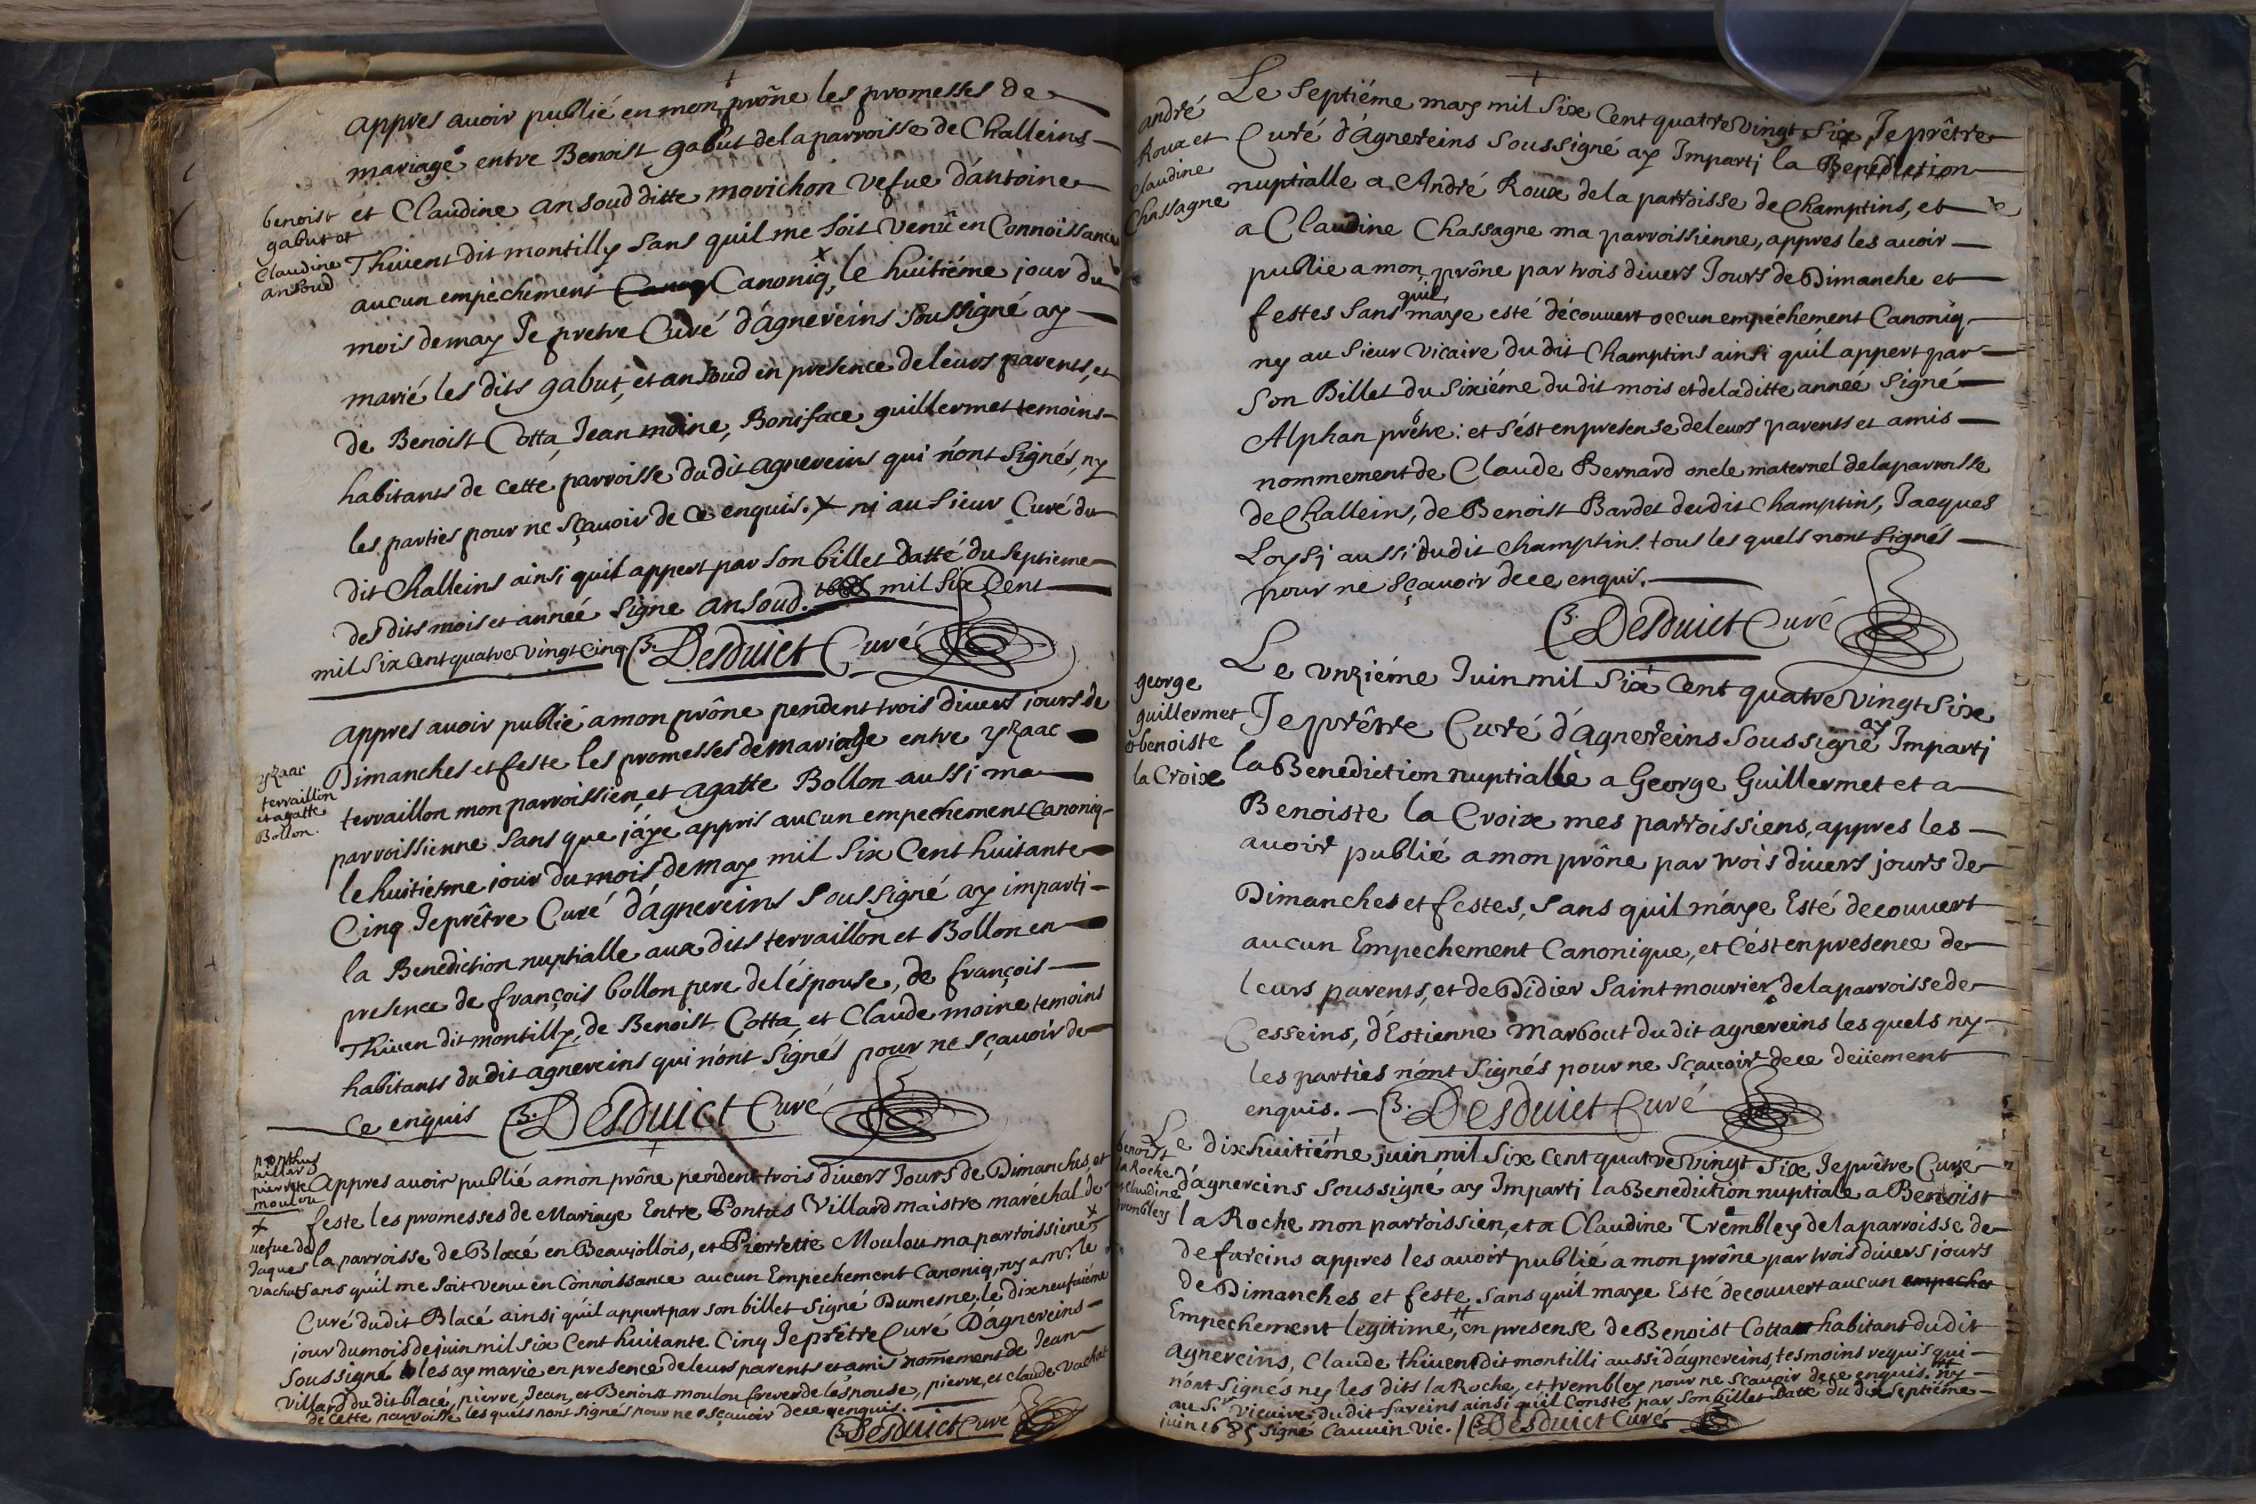 appres auoir publié en mon prône les promesses de
mariage entre Benoist gabut de la parroisse de Challeins
benoist
gabut et
Claudine
ansoud
et Claudine ansoud ditte morichon vefue d'antoine
Thiuent dit montilly sans quil me soit venu en Connoissance
aucun empechement Canoniq, x le huitiéme jour du
mois de may Je pretre Curé d'agnereins soussigné ay
marié les dits gabut, et ansoud en presence de leurs parents, et
de Benoist Cotta, Jean moine, Boniface guillermet temoins
habitants de cette parroisse du dit agnereins qui n'ont signés, ny
les parties pour ne sçauoir de ce enquis. x ni au sieur Curé du
dit Challeins ainsi quil appert par son billet datté du septieme
des dits mois et année signe ansoud. mil six Cent
mil six cent quatre vingt cinq B. Desduict Curé
appres auoir publié a mon prône pendent trois diuers jours de
yzaac
terraillon
et agatte
Bollon.
Dimanches et feste les promesses de mariage entre yzaac
terraillon mon parroissien, et agatte Bollon aussi ma
parroissienne sans que j'aye appris aucun empechement Canoniq
le huitiesme jour du mois de may mil six Cent huitante
Cinq Je prêtre Curé d'agnereins soussigné ay imparti
la Benediction nuptialle aux dits terraillon et Bollon en
presence de françois bollon pere de l'éspouse, de françois
Thiuen dit montilly, de Benoist Cotta, et Claude moine temoins
habitants du dit agnereins qui n'ont signés pour ne sçauoir de
ce enquis B. Desduict Curé
ponthus
uillard
pierrette
moulou
x
uefue de
Jaques
vachat
Appres auoir publié a mon prône pendent trois diuers Jours de Dimanches, et
feste les promesses de Mariage Entre Pontus Villard maistre maréchal de
la parroisse de Blacé en Beaujollois, et Pierrette Moulou ma parroissiene x
sans quil me soit venu en Connoissance aucun Empechement Canoniq, ny a mr. le
Curé du dit Blacé ainsi quil appert par son billet signé Dumesne, le dixneufuième
jour du mois de juin mil six Cent huitante Cinq Je prêtre Curé D'agnereins
soussigné les ay marie en presence de leurs parents et amis nommement de Jean
Villard du dit blacé, pierre, Jean, et Benoist moulou freres de l'espouse, pierre, et claude vachat
de cette parroisse les quels n'ont signés pour ne sçauoir de ce enquis.
B. Desduict Curé
andré
Roux et
Claudine
Chassagne
Le septiéme may mil six Cent quatre vingt six, Je prêtre
Curé d'Agnereins soussigné ay Imparti la Benediction
nuptialle a André Roux de la parroisse de Champtins, et
a Claudine Chassagne ma parroissienne, appres les auoir
publie a mon prône par trois diuers Jours de Dimanche et
festes sans quil maye esté découuert occun empéchement Canoniq
ny au sieur vicaire du dit Champtins ainsi quil appert par
son Billet du sixiéme du dit mois et de la ditte année signé
Alphan prêtre: et s'est en presense de leurs parents et amis
nommement de Claude Bernard oncle maternel de la parroisse
de Challeins, de Benoist Bardet du dit Champtins, Jacques
Loysi aussi du dit Champtins. tous les quels n'ont signés
pour ne sçauoir de ce enquis.
B. Desduict Curé
george
guillermet
benoiste
la Croix
Le vnziéme Juin mil six Cent quatre vingt six
Je prêtre Curé d'Agnereins soussigné ay Imparti
la Benediction nuptialle a George Guillermet et a
Benoiste la Croix mes parroissiens, appres les
auoir publié a mon prône par trois diuers jours de
Dimanches et festes, sans quil m'aye Esté decouuert
aucun Empechement Canonique, et C'ést en presence de
leurs parents, et de Didier Saint mourier de la parroisse de
Cesseins, d'Estienne Marbout du dit agnereins les quels ny
les parties n'ont signés pour ne sçauoir de ce deüement
enquis. B. Desduict Curé
benoist
la Roche
et Claudine
trembley
Le dixhuitiéme juin mil six cent quatre vingt six Je prêtre Curé
d'agnereins soussigné ay Imparti la Benediction nuptiale a Benoist
la Roche mon parroissien, et a Claudine Trembley de la parroisse de
de fareins appres les auoir publié a mon prône par trois diuers jours
de Dimanches et feste sans quil maye Esté decouuert aucun empecher
Empechement legitime, # en presense de Benoist Cotta habitant du dit
agnereins, Claude thiuent dit montilli aussi d'agnereins, tesmoins requis qui
n'ont signés ny les dits la Roche, et trembley pour ne sçauoir de ce enquis. # ny
au sr. vicaire du dit fareins ainsi quil Conste par son billet Datté du dix septiéme
juin 1685 signé Cauuin vic. / B. Desduict Curé